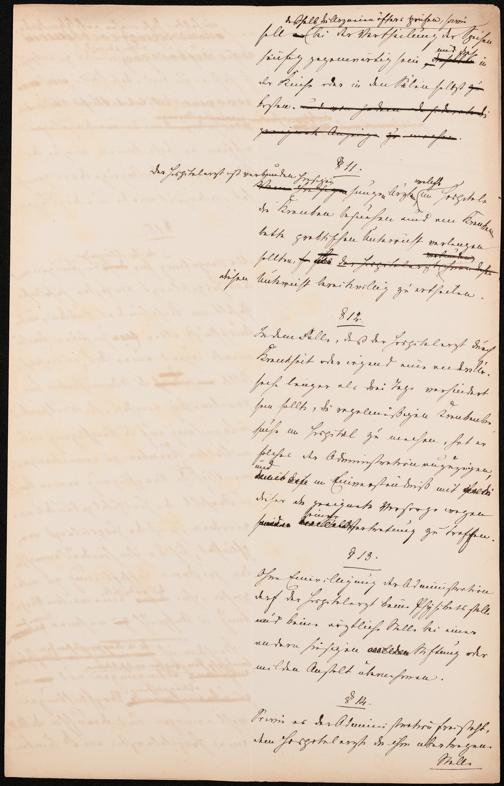 soll bei der Vertheilung der Speisen
häufig gegenwärtig sein und solche in
der Küche oder in den Sälen selbst
kosten.
§ 11.
Der Hospitalarzt ist verbunden
hiesigen jungen Ärzten, welche im Hospitale
die Kranken besuchen und am Kranken
bette praktischen Unterricht verlangen
sollten,
diesen Unterricht bereitwillig zu ertheilen.
§ 12.
In dem Falle, daß der Hospitalarzt durch
Krankheit oder irgend eine andere Ur-
sache länger als drei Tage verhindert
sein sollte, die regelmäßigen Krankenbe-
suche im Hospital zu machen, hat er
solches der Administration anzuzeigen,
und im Einverständniß mit
dieser die geeignete Vorsorge wegen
seiner Vertretung zu treffen.
§ 13.
Ohne Einwilligung der Administration
darf der Hospitalarzt keine Physikatsstelle
und keine ärztliche Stelle bei einer
andern hiesigen Stiftung oder
milden Anstalt übernehmen.
§ 14.
Sowie es der Administration freisteht,
dem Hospitalarzte die ihm übertragene
Stelle